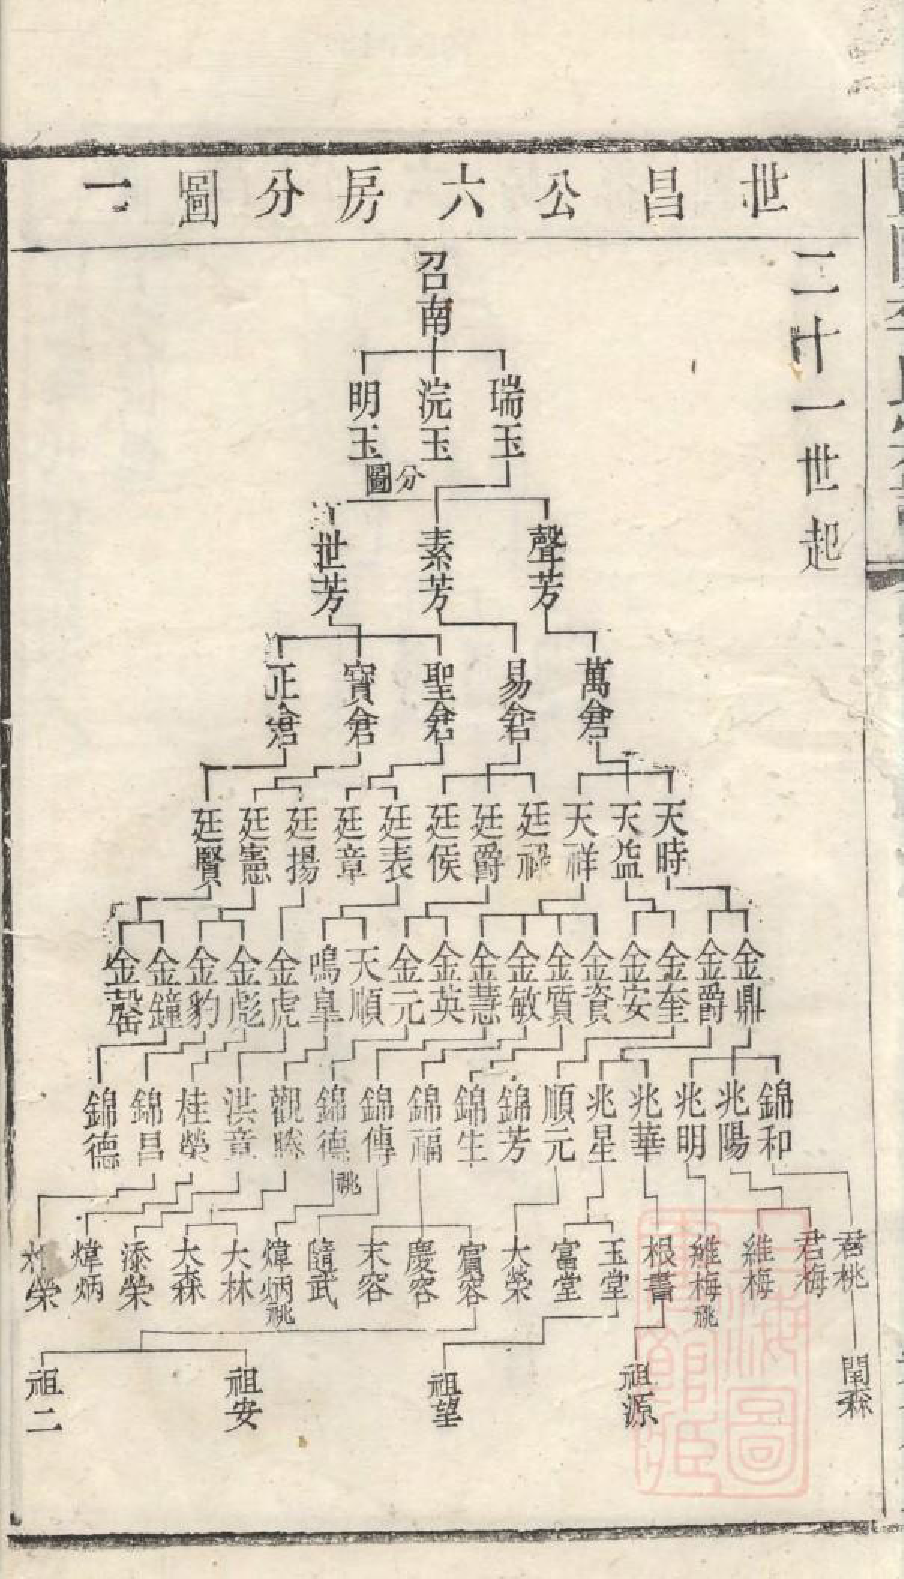 世昌公六房分圖一
二十一世起
召南
瑞玉 浣玉 明玉
分圖
聲芳 素芳 世芳
萬倉 易倉 聖倉 寶倉 正倉
天時 天益 天祥 廷祿 廷爵 廷侯 廷表 廷章 廷揚 廷憲 廷賢
金鼎 金爵 金奎 金安 金資 金質 金敏 金慧 金英 金元 天順 鳴皐 金虎 金彪 金豹 金鐘 金罄
錦和 兆陽 兆明 兆華 兆星 順元 錦芳 錦生 錦福 錦傳 錦德祧 觀睦 洪章 桂榮 錦昌 錦德
君桃 君梅 維梅 維梅祧 根書 玉堂 富堂 大榮 賓容 慶容 末容 隨武 煒炳祧 大林 大森 漆榮 煒炳 榮
閏森 祖源 祖望 祖安 祖二